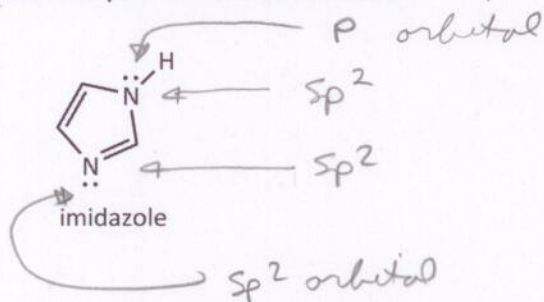 p orbital
H
N
sp²
N
sp²
imidazole
sp² orbital